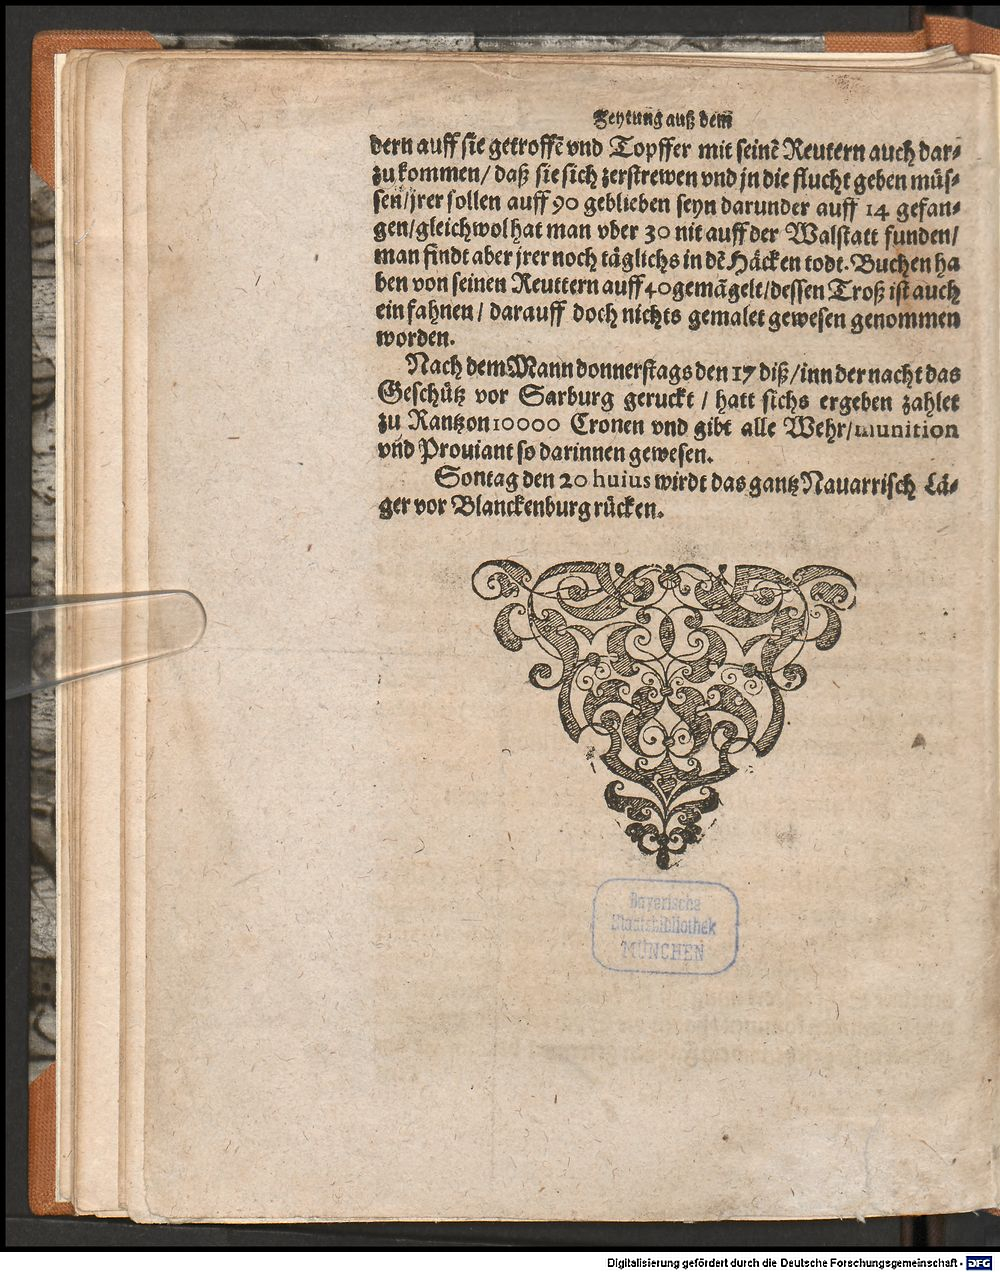 Zeytung auß dem
dern auff sie getroffē vnd Topffer mit seinē Reutern auch dar-
zu kommen/ daß sie sich zerstrewen vnd jn die flucht geben müs-
sen/jrer sollen auff 90 geblieben seyn darunder auff 14 gefan-
gen/gleichwol hat man vber 30 nit auff der Walstatt funden/
man findt aber jrer noch täglichs in dē Häcken todt. Buchen ha
ben von seinen Reuttern auff 40 gemāgelt/dessen Troß ist auch
ein fahnen/ darauff doch nichts gemalet gewesen genommen
worden.
Nach dem Mann donnerstags den 17 diß/inn der nacht das
Geschütz vor Sarburg geruckt / hatt sichs ergeben zahlet
zu Rantzon 10000 Cronen vnd gibt alle Wehr/munition
vnd Prouiant so darinnen gewesen.
Sontag den 20 huius wirdt das gantz Nauarrisch Lä-
ger vor Blanckenburg rücken.
Bayerische
Staatsbibliothek
MÜNCHEN
Digitalisierung gefördert durch die Deutsche Forschungsgemeinschaft - DFG